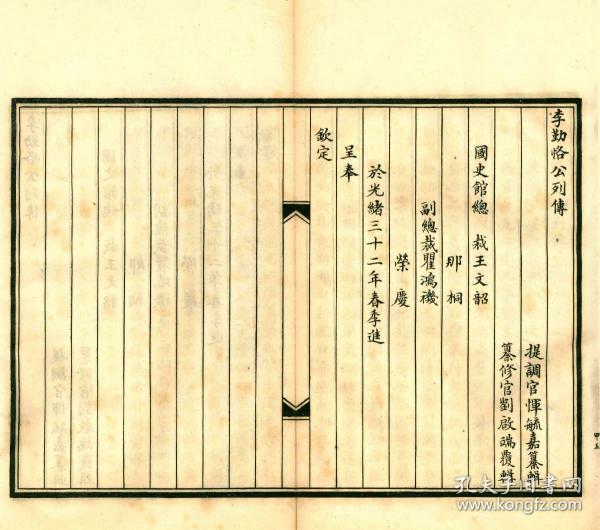 李勤恪公列傳
提調官惲毓嘉纂輯
纂修官劉啟端覆輯
國史館總裁王文韶
那桐
副總裁瞿鴻禨
榮慶
於光緒三十二年春季進
呈奉
欽定
孔夫子旧书网